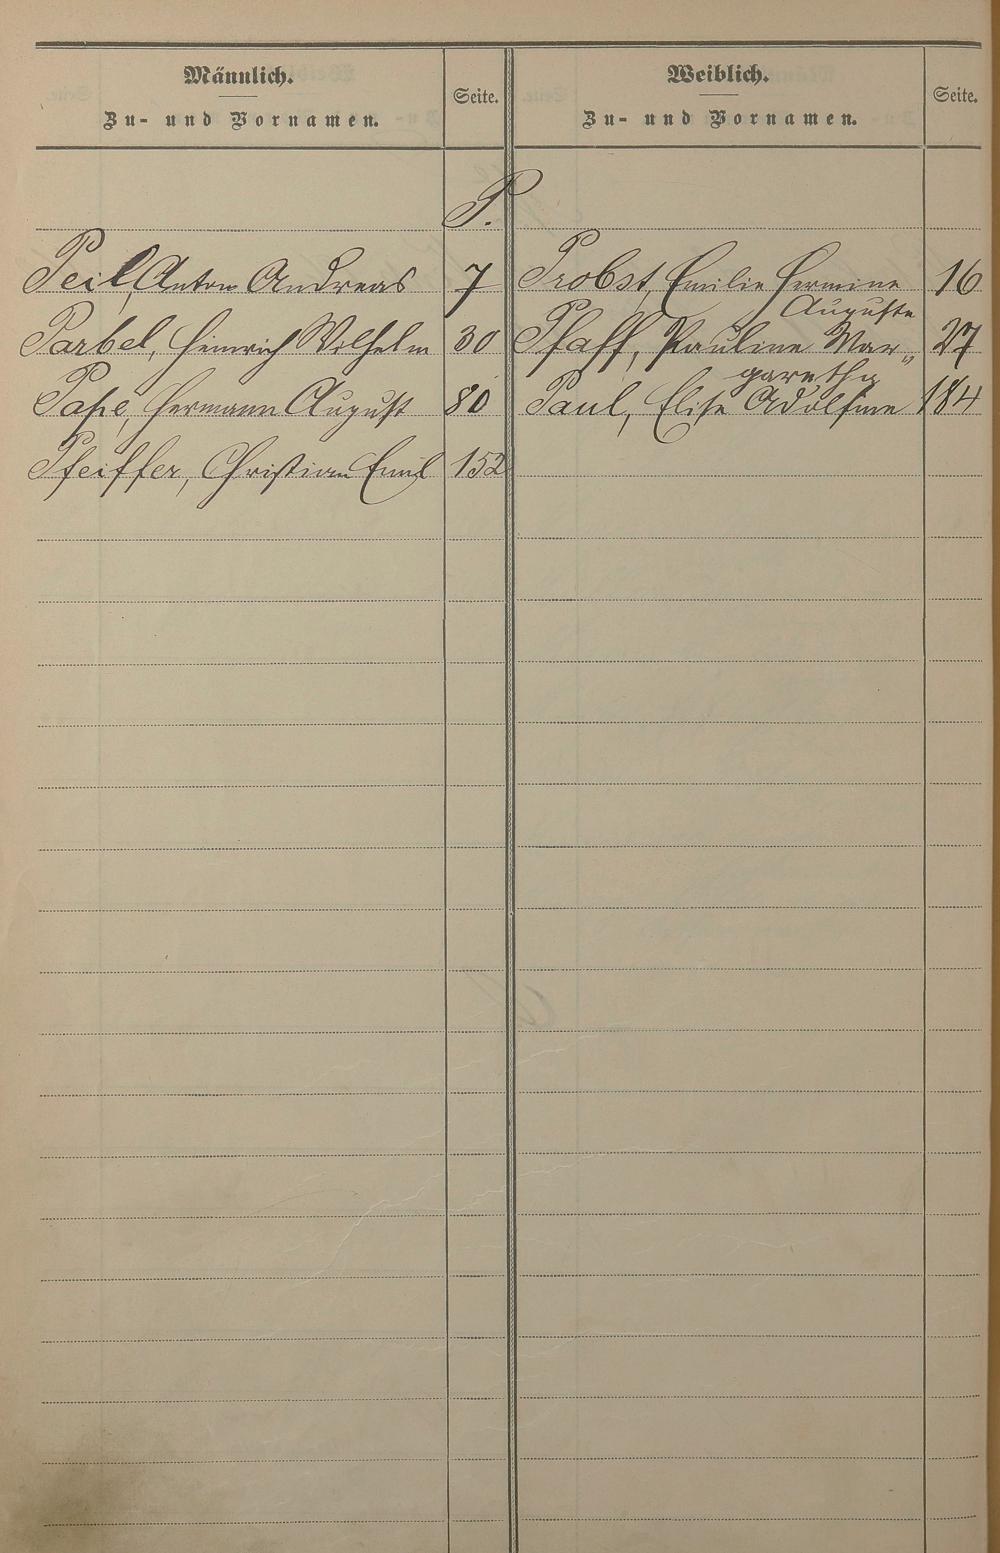 Männlich.
Zu- und Vornamen.
Seite.
Weiblich.
Zu- und Vornamen.
Seite.
P.
Peil, Anton Andreas 7
Parbel, Heinrich Wilhelm 30
Pape, Hermann August 80
Pfeiffer, Christian Emil 152
Probst, Emilie Hermine 16
Auguste
Pfaff, Pauline Mar„ 27
garetha
Paul, Elise Adolfine 184